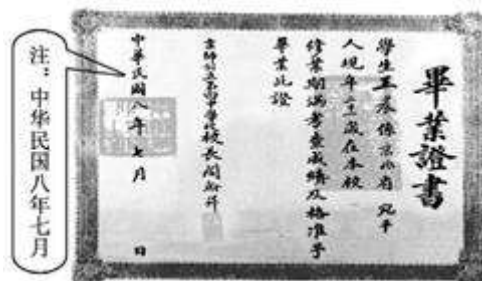 畢業證書
學生王係京兆 宛平
人現年歲在本校
修業期滿考查成績及格准予
畢業此證
京師公立第四中學校校長
中華民國八年七月 日
注：中华民国八年七月